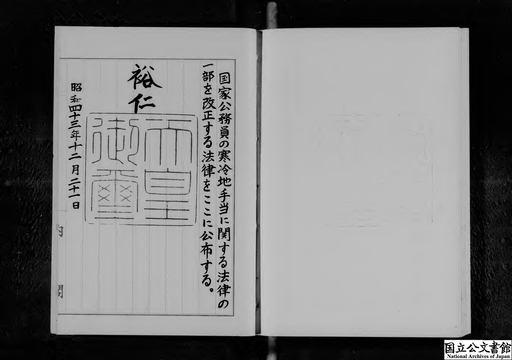 国家公務員の寒冷地手当に関する法律の
一部を改正する法律をここに公布する。
裕仁
天皇
御璽
昭和四十三年十二月二十一日
国立公文書館
National Archives of Japan